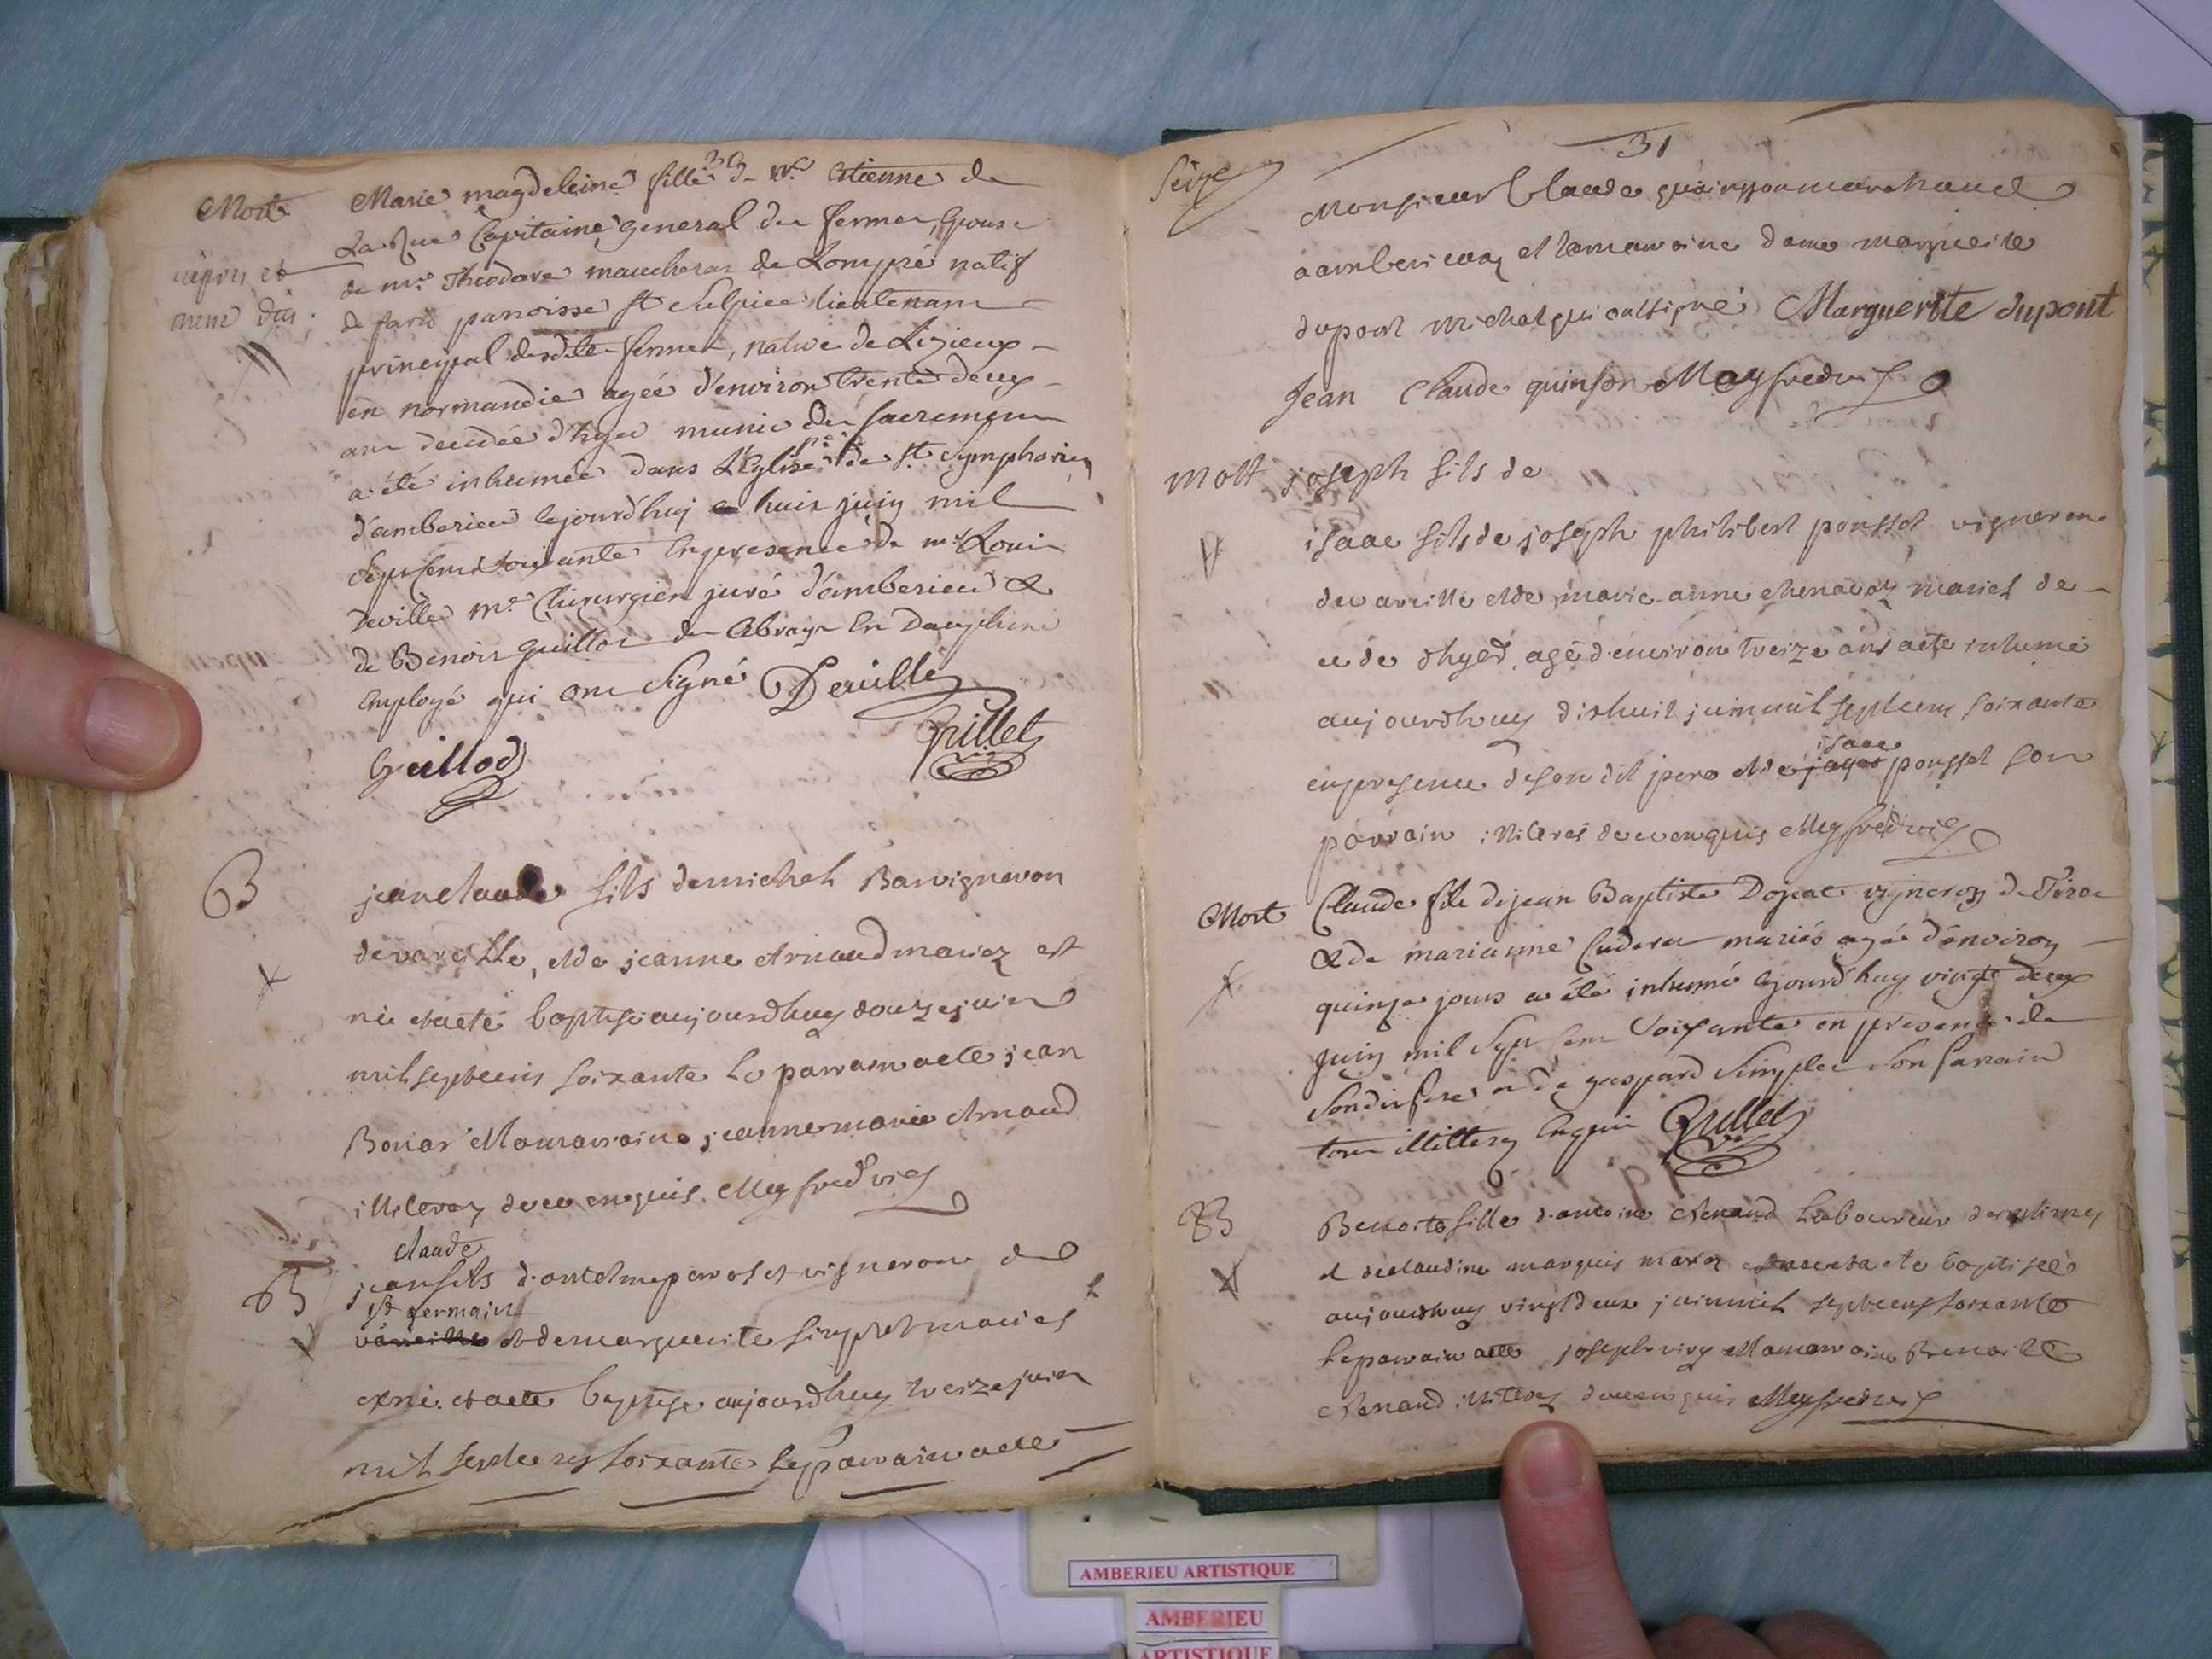 Mort
Marie magdeleine fille de Mr. Etienne de
La Rue Capitaine general des fermes, Epouse
de mr. Theodore de Lompré natif
de paris parroisse st Sulpice lieutenant
principal desdites fermes, native de Lizieux
en normandie agée d'environ trente deux
ans decedée d'hyer munie des sacremens
a été inhumée dans L'Eglise de st. Symphorien
d'amberieu cejourd'huy huit juin mil
sept cent soixante en presence de mr Louis
Deville me. Chirurgien juré d'amberieu &
de Benoit guillot des Abrays En Dauphiné
Employé qui ont signé Deville
Guillod Grillet
B
jean claude fils de michel Bon vigneron
de vareille, et de jeanne Arnaud mariez est
né et a eté baptisé aujourdhuy douze juin
mil sept cens soixante le parrain a ete jean
Bonar et la marraine jeanne marie Arnaud
illiterez de ce enquis Meyfredi vic
B
claude
jean fils d'antelme perroset vigneron de
st germain
vareille et de marguerite simplet mariés
est né et a ete baptisé aujourdhuy treize juin
mil sept cens soixante le parrain a ete
31
Monsieur Claude quinsson marchand
a amberieux et la marraine dame marguerite
dupont michel qui ont signé Marguerite dupont
Jean Claude quinson Meyfredi vic
mort
joseph fils de
isaac fils de joseph philibert pousset vigneron
de vareille et de marie anne chenavaz mariés de
ce de d'hyer agé d'environ treize ans a ete inhumé
aujourdhuy dixhuit juin mil sept cens soixante
isaac
en presence de son dit pere et de pousset son
parrain illiterés de ce enquis Meyfredi vic
Mort
Claude fils de jean Baptiste Dojat vigneron de
& de marianne mariés agé d'environ
quinze jours a été inhumé cejourd'huy vingt deux
juin mil sept cent soixante en presence de
son dit pere et de gaspard Simplet son parrain
tous illitterez Enquis Grillet
B
Benoite fille d'antoine chenaud laboureur
et de claudine marquis mariez est née et a ete baptisée
aujourdhuy vingt deux juin mil sept cens soixante
le parrain a ete joseph et la marraine Benoite
chenaud illiterez de ce enquis Meyfredi vic
AMBERIEU ARTISTIQUE
AMBERIEU
ARTISTIQUE